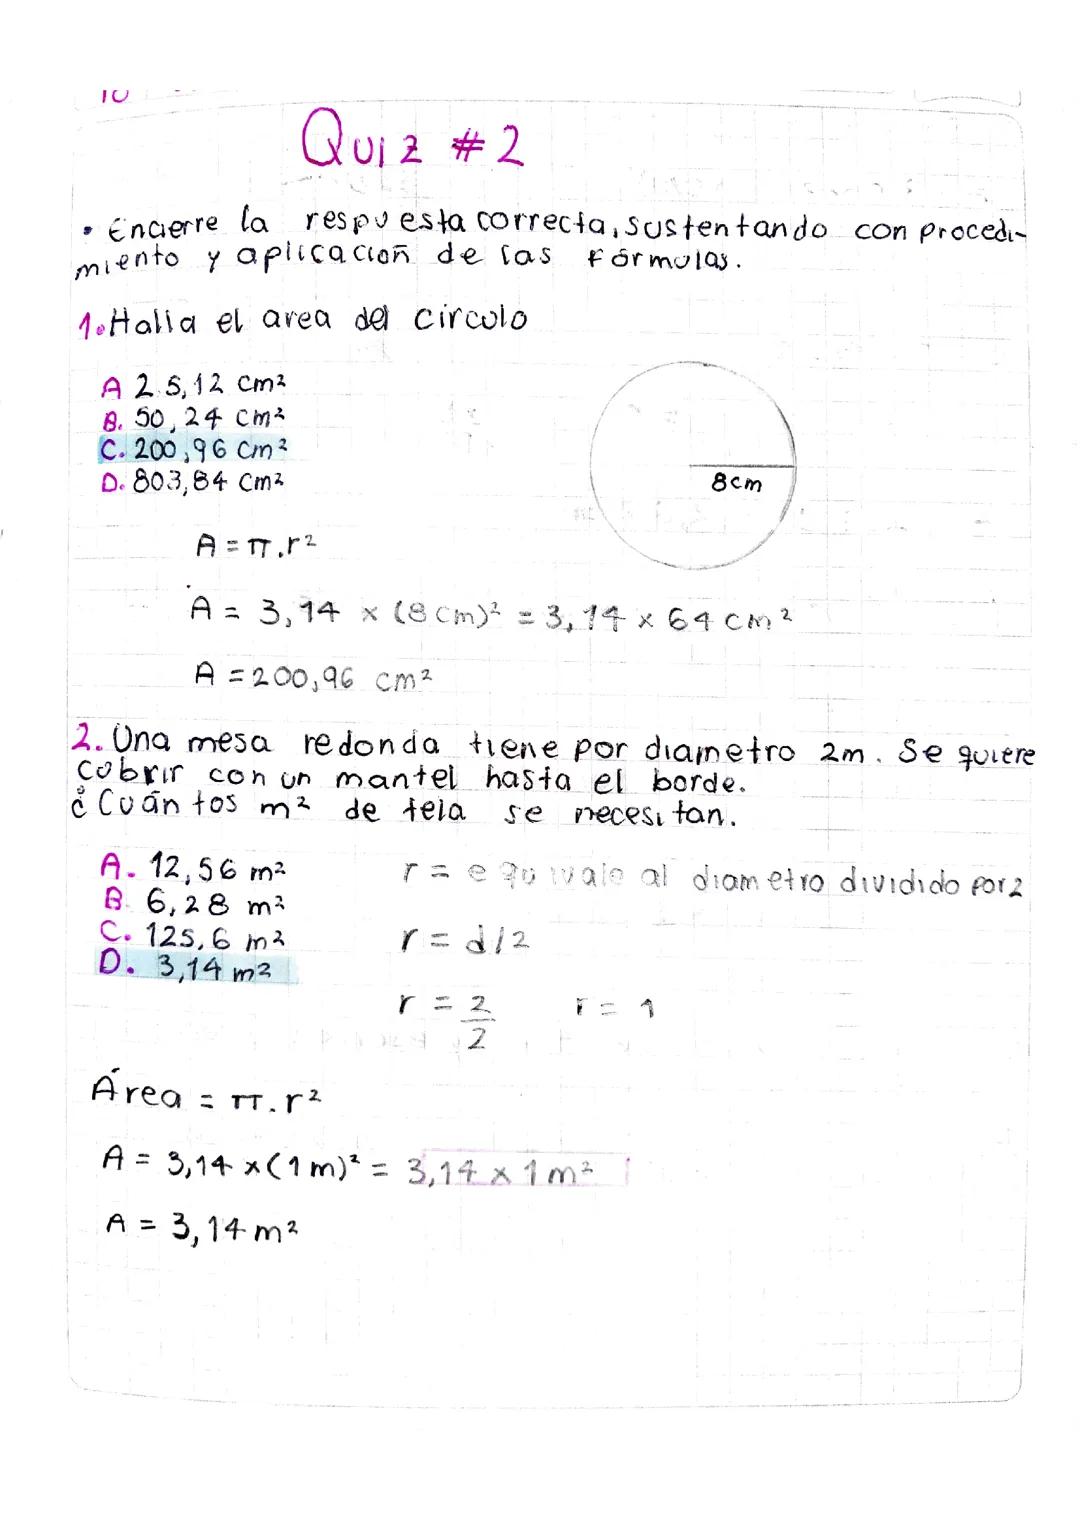 Quiz #2
• Encierre la respuesta correcta, sustentando con procedi-
miento y aplicación de las fórmulas.
1. Halla el area del circulo
A 25,12 cm²
B. 50,24 cm²
C. 200,96 cm²
D. 803,84 cm²
8cm
A = π.r²
A = 3,14 x (8cm)² = 3,14 x 64 cm²
A = 200,96 cm²
2. Una mesa redonda tiene por diametro 2m. Se quiere
cobrir con un mantel hasta el borde.
¿Cuántos m² de tela se necesitan.
A. 12,56 m²
B. 6,28 m²
C. 125,6 m²
D. 3,14 m²
r = equivale al diametro dividido por 2
r = d/2
r = 2/2 r = 1
Área = π.r²
A = 3,14 x (1m)² = 3,14 x 1m²
A = 3,14 m²